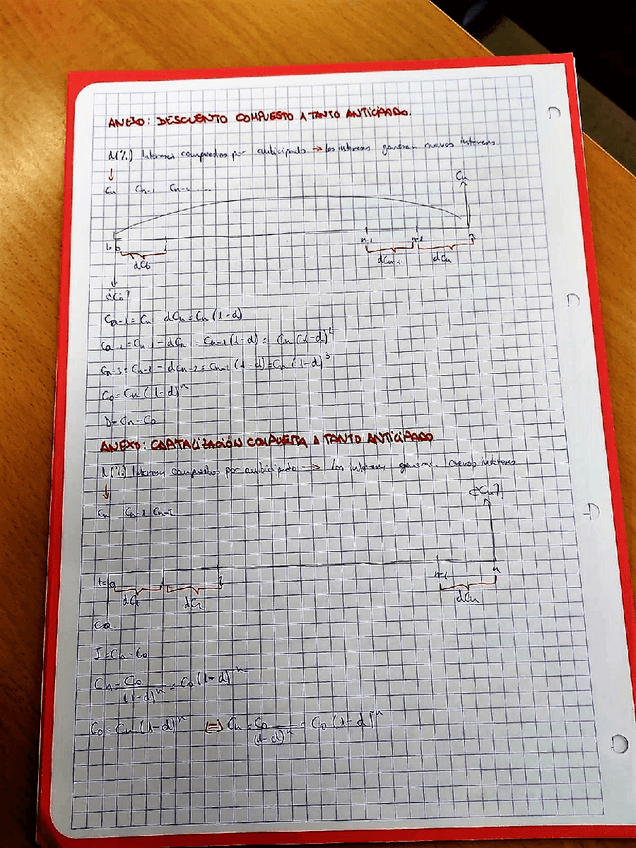 ANEXO: DESCUENTO COMPUESTO A TANTO ANTICIPADO.
d(%) Intereses compuestos por anticipado → los intereses generan nuevos intereses.
↓
Cn Cn-1 Cn-2 ......
Cn
t=0 1 n-2 n-1 n
dC1 dCn-1 dCn
¿C0?
Cn-1 = Cn - dCn = Cn (1-d)
Cn-2 = Cn-1 - dCn-1 = Cn-1 (1-d) = Cn (1-d)^2
Cn-3 = Cn-2 - dCn-2 = Cn-2 (1-d) = Cn (1-d)^3
C0 = Cn (1-d)^n
D = Cn - C0
ANEXO: CAPITALIZACIÓN COMPUESTA A TANTO ANTICIPADO
d(%) Intereses compuestos por anticipado → Los intereses generan nuevos intereses
↓
Cn Cn-1 Cn-2
¿Cn?
t=0 1 2 n-1 n
dC1 dC2 dCn
C0
I = Cn - C0
Cn = C0 / (1-d)^n = C0 (1-d)^-n
C0 = Cn (1-d)^n ⇒ Cn = C0 / (1-d)^n = C0 (1-d)^-n